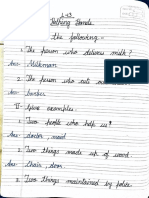 L-13
Helping Hands
the following:-
1. The person who delivers milk?
Ans: Milkman
2. The person who cuts our
Ans: barber
II- Give examples:-
1. Two people who help us?
Ans: doctor, maid
2. Two things made up of wood
Ans: Chair, door.
3. Two things maintained by police